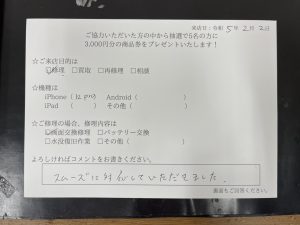 来店日：令和 5年 2月 2日
ご協力いただいた方の中から抽選で5名の方に
3,000円分の商品券をプレゼントいたします！
☆ご来店目的は
☑修理 □買取 □再修理 □相談
☆機種は
iPhone（12 pro） Android（ ）
iPad （ ） その他（ ）
☆ご修理の場合、修理内容は
☑画面交換修理 □バッテリー交換
□水没復旧作業 □その他（ ）
よろしければコメントをお書きください。
スムーズに対応していただきました。
裏面もご回答ください。